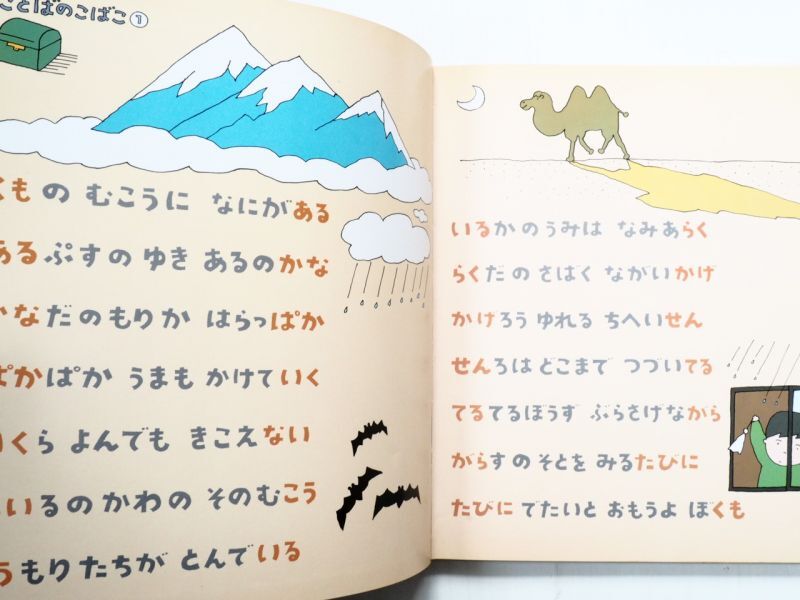 ことばのこばこ ①
くもの むこうに なにがある
あるぷすの ゆき あるのかな
かなだのもりか はらっぱか
ぱかぱか うまも かけていく
いくら よんでも きこえない
いるのかわの そのむこう
うもりたちが とんでいる
いるかのうみは なみあらく
らくだの さばく ながいかけ
かげろう ゆれる ちへいせん
せんろは どこまで つづいてる
てるてるぼうず ぶらさげながら
がらすの そとを みるたびに
たびに でたいと おもうよ ぼくも